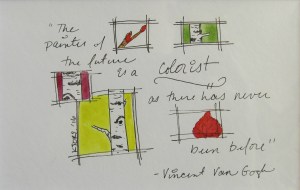 "The
painter of
the future
is a colorist
as there has never
been before"
- Vincent Van Gogh